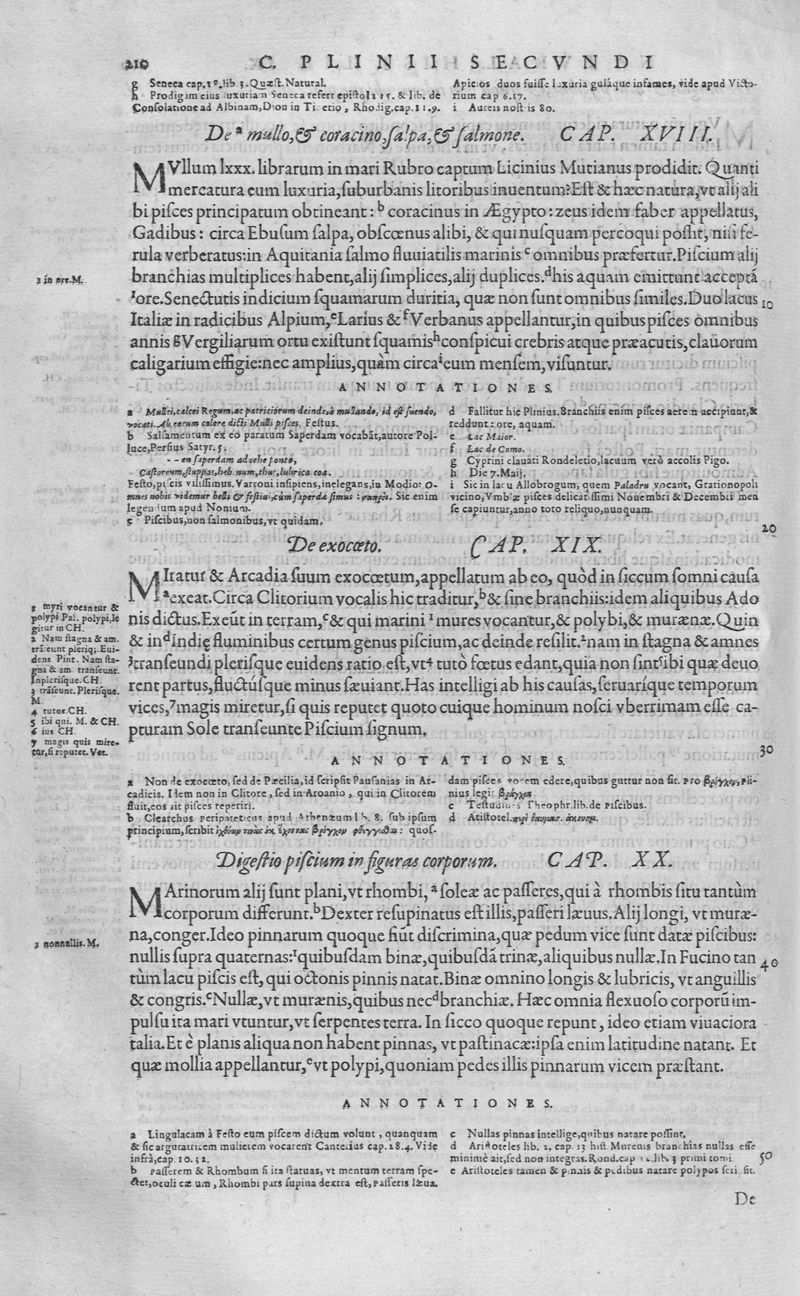 210 C. PLINII SECVNDI
g Seneca cap.18.lib 3.Quæst.Natural.
h Prodigum eius luxuriam Seneca refert epistol. & lib. de
Consolatione ad Albinam, Dion in Tiberio, Rhodig.cap.11.9.
Apicios duos fuisse luxuria gulâque infames, vide apud Victo-
rium cap 6.17.
i Aureis nostris 80.
De ᵃ mullo,& coracino,salpa,& salmone. CAP. XVIII.
MVllum lxxx. librarum in mari Rubro captum Licinius Mutianus prodidit. Quanti
mercatura eum luxuria,suburbanis litoribus inuentum?Est & hæc natura,vt alij ali
bi pisces principatum obtineant: ᵇ coracinus in Ægypto: zeus idem faber appellatus,
Gadibus: circa Ebusum salpa, obscœnus alibi, & qui nusquam percoqui possit, nisi fe-
rula verberatus:in Aquitania salmo fluuiatilis marinis ᶜ omnibus præfertur.Piscium alij
branchias multiplices habent,alij simplices,alij duplices.ᵈhis aquam emittunt acceptā
¹ore.Senectutis indicium squamarum duritia, quæ non sunt omnibus similes.Duo lacus
Italiæ in radicibus Alpium,ᵉLarius &ᶠVerbanus appellantur,in quibus pisces omnibus
annis ᵍVergiliarum ortu existunt squamisʰconspicui crebris atque præacutis,clauorum
caligarium effigie:nec amplius,quàm circaⁱeum mensem,visuntur.
1 in ore.M.
10
ANNOTATIONES.
a Mullei,calcei Regum,ac patriciorum deinde,à mullando, id est suendo,
vocati.Ab eorum colore dicti Mulli pisces. Festus.
b Salsamentum ex eo paratum Saperdam vocabāt,autore Pol-
luce,Persius Satyr.5.
- - en saperdam aduehe ponto,
Castoreum,stuppas,hebenum,thus,lubrica coa.
Festo,piscis vilissimus.Varroni insipiens,inelegans,in Modio: O-
mnes nobis videmur belli & festiui,cùm saperdæ simus : σαπροί. Sic enim
legendum apud Nonium.
c Piscibus,non salmonibus,vt quidam.
d Fallitur hîc Plinius.Branchiis enim pisces aerem accipiunt,&
reddunt: ore, aquam.
e Lac Maior.
f Lac de Como.
g Cyprini clauati Rondeletio,lacuum verò accolis Pigo.
h Die 7.Maij.
i Sic in lacu Allobrogum, quem Paladru vocant, Grationopoli
vicino,Vmblæ pisces delicatissimi Nouembri & Decembri men
se capiuntur,anno toto reliquo,nunquam.
20
De exocœto. CAP. XIX.
MIratur & Arcadia suum exocœtum,appellatum ab eo, quòd in siccum somni causa
ᵃexeat.Circa Clitorium vocalis hic traditur,ᵇ& sine branchiis:idem aliquibus Ado
nis dictus.Exeūt in terram,ᶜ& qui marini ¹mures vocantur,& polybi,& murænæ.Quin
& inᵈIndię fluminibus certum genus piscium,ac deinde resilit.²nam in stagna & amnes
³transeundi plerisque euidens ratio est,vt⁴ tutò fœtus edant,quia non sint⁵ibi quæ deuo
rent partus,fluctúsque minus sæuiant.Has intelligi ab his causas,seruaríque temporum
vices,⁷magis miretur,si quis reputet quoto cuique hominum nosci vberrimam esse ca-
pturam Sole transeunte Piscium signum.
1 myri vocantur &
polypi Pal. polypi,le
gitur in CH.
2 Nam stagna & am.
trāseunt pleriq;.Eui-
dens Pint. Nam sta-
gna & am transeunt.
Inplerisque.CH.
3 trāseunt.Plerisque.
M.
4 tutos.CH.
5 ibi qui. M. & CH.
6 ius CH
7 magis quis mire-
tur,si reputet. Vet.
30
ANNOTATIONES.
a Non de exocœto, sed de Pœcilia,id scripsit Pausanias in Ar-
cadicis. Idem non in Clitore, sed in Aroanio, qui in Clitorem
fluit,eos ait pisces reperiri.
b Clearchus peripateticus apud Athenæum lib. 8. sub ipsum
principium,scribit ἰχθύων τινὰς οὐκ ἔχοντας βρόγχον φθέγγεσθαι: quos-
dam pisces vocem edere,quibus guttur non sit. Pro βρόγχον, Pli-
nius legit βράγχια
c Testudines Theophr.lib.de Piscibus.
d Aristotel.
Digestio piscium in figuras corporum. CAP. XX.
MArinorum alij sunt plani,vt rhombi, ᵃ soleæ ac passeres,qui à rhombis situ tantùm
corporum differunt.ᵇDexter resupinatus est illis,passeri læuus.Alij longi, vt muræ-
na,conger.Ideo pinnarum quoque fiūt discrimina,quæ pedum vice sunt datæ piscibus:
nullis supra quaternas:¹quibusdam binæ,quibusdā trinæ,aliquibus nullæ.In Fucino tan
tùm lacu piscis est, qui octonis pinnis natat.Binæ omnino longis & lubricis, vt anguillis
& congris.ᶜNullæ,vt murænis,quibus necᵈbranchiæ. Hæc omnia flexuoso corporū im-
pulsu ita mari vtuntur,vt serpentes terra. In sicco quoque repunt, ideo etiam viuaciora
talia.Et è planis aliqua non habent pinnas, vt pastinacæ:ipsa enim latitudine natant. Et
quæ mollia appellantur,ᵉvt polypi, quoniam pedes illis pinnarum vicem præstant.
1 nonnullis.M.
40
ANNOTATIONES.
a Lingulacam à Festo eum piscem dictum volunt, quanquam
& sic argutatricem mulierem vocarent Canterius cap.18.4. Vide
infrà,cap.10.32.
b Passerem & Rhombum si ita statuas, vt mentum terram spe-
ctet,oculi cælum, Rhombi pars supina dextra est, Passeris læua.
c Nullas pinnas intellige,quibus natare possint.
d Aristoteles lib. 2. cap. 13 hist Murenis branchias nullas esse
minimè ait,sed non integras.Rond.cap .lib.3 primi tomi
e Aristoteles tamen & pinnis & pedibus natare polypos scri sit.
50
De